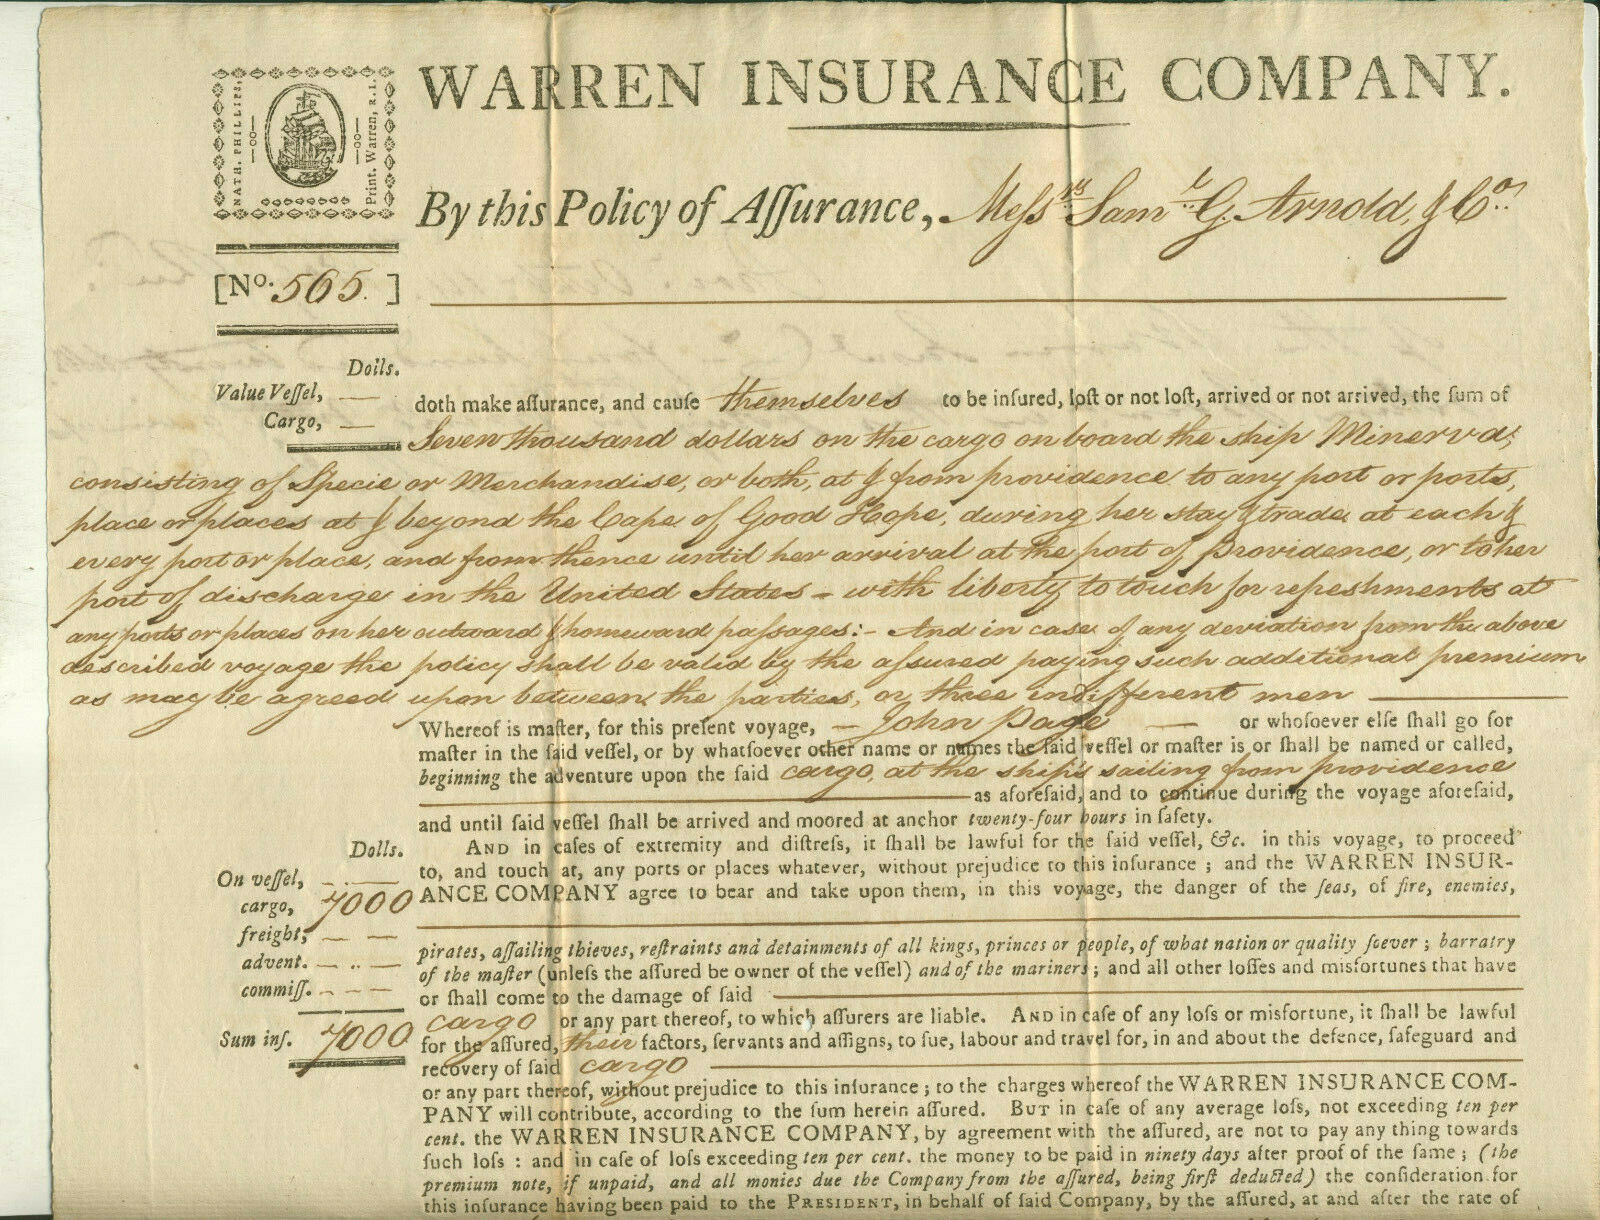 WARREN INSURANCE COMPANY.
NATH. PHILLIPS,
Print. Warren, R. I.
By this Policy of Aſſurance, Meſsrs Saml G. Arnold, & Co.
[No. 565. ]
Dolls.
Value Veſſel, —
Cargo, —
doth make aſſurance, and cauſe themselves to be inſured, loſt or not loſt, arrived or not arrived, the ſum of
Seven thousand dollars on the cargo on board the ship Minerva,
consisting of Specie or Merchandise, or both, at & from providence to any port or ports,
place or places at & beyond the Cape of Good Hope, during her stay & trade at each &
every port or place, and from thence until her arrival at the port of providence, or to her
port of discharge in the United States - with liberty to touch for refreshments at
any ports or places on her outward & homeward paſsages:- And in case of any deviation from the above
described voyage the policy shall be valid by the aſsured paying such additional premium
as may be agreed upon between the parties, or three indifferent men
Whereof is maſter, for this preſent voyage, — John Page — or whoſoever elſe ſhall go for
maſter in the ſaid veſſel, or by whatſoever other name or names the ſaid veſſel or maſter is or ſhall be named or called,
beginning the adventure upon the ſaid cargo, at the ship's sailing from providence
as aforeſaid, and to continue during the voyage aforeſaid,
and until ſaid veſſel ſhall be arrived and moored at anchor twenty-four hours in ſafety.
AND in caſes of extremity and diſtreſs, it ſhall be lawful for the ſaid veſſel, &c. in this voyage, to proceed
to, and touch at, any ports or places whatever, without prejudice to this inſurance ; and the WARREN INSUR-
ANCE COMPANY agree to bear and take upon them, in this voyage, the danger of the ſeas, of fire, enemies,
Dolls.
On veſſel, — —
cargo, 7000
freight, — —
advent. — .. —
commiſſ. - — —
Sum inſ. 7000
pirates, aſſailing thieves, reſtraints and detainments of all kings, princes or people, of what nation or quality ſoever ; barratry
of the maſter (unleſs the aſſured be owner of the veſſel) and of the mariners ; and all other loſſes and misfortunes that have
or ſhall come to the damage of ſaid
cargo or any part thereof, to which aſſurers are liable. AND in caſe of any loſs or misfortune, it ſhall be lawful
for the aſſured, their factors, ſervants and aſſigns, to ſue, labour and travel for, in and about the defence, ſafeguard and
recovery of ſaid cargo
or any part thereof, without prejudice to this inſurance ; to the charges whereof the WARREN INSURANCE COM-
PANY will contribute, according to the ſum herein aſſured. BUT in caſe of any average loſs, not exceeding ten per
cent. the WARREN INSURANCE COMPANY, by agreement with the aſſured, are not to pay any thing towards
ſuch loſs : and in caſe of loſs exceeding ten per cent. the money to be paid in ninety days after proof of the ſame ; (the
premium note, if unpaid, and all monies due the Company from the aſſured, being firſt deducted) the conſideration for
this inſurance having been paid to the PRESIDENT, in behalf of ſaid Company, by the aſſured, at and after the rate of